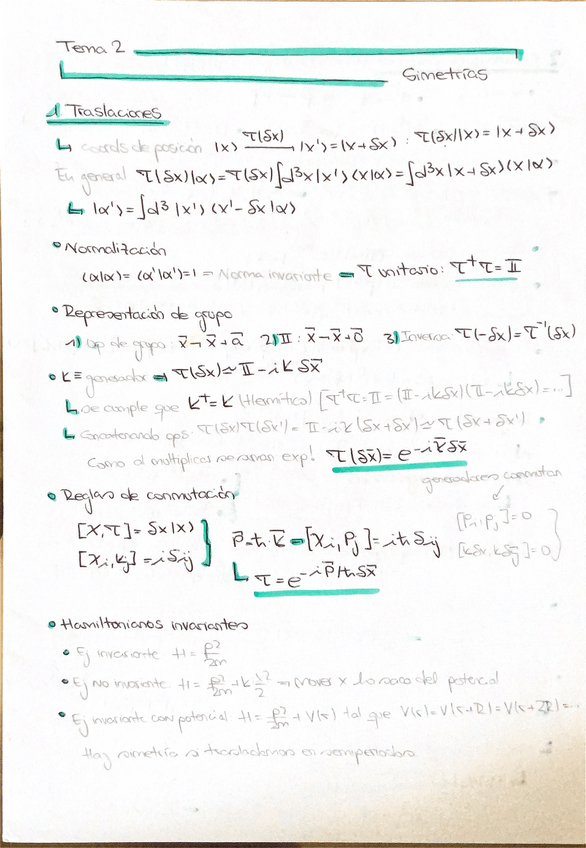 Tema 2
Simetrías
1 Traslaciones
↳ coords de posición |x⟩ τ(δx)→ |x'⟩ = |x + δx⟩ : τ(δx)|x⟩ = |x + δx⟩
En general τ(δx)|α⟩ = τ(δx)∫d³x|x'⟩⟨x|α⟩ = ∫d³x|x + δx⟩⟨x|α⟩
↳ |α'⟩ = ∫d³ |x'⟩⟨x' - δx|α⟩
• Normalización
⟨α|α⟩ = ⟨α'|α'⟩ = 1 → Norma invariante → τ unitario: τ†τ = 𝕀
• Representación de grupo
1) Op de grupo: x̄ → x̄ + ā 2) 𝕀 : x̄ → x̄ + 0̄ 3) Inversa τ(-δx) = τ⁻¹(δx)
• K ≡ generador → τ(δx) ≃ 𝕀 - iKδx̄
↳ se cumple que K† = K (Hermítico) [τ†τ = 𝕀 = (𝕀 - ikδx)(𝕀 - ikδx) = ...]
↳ Concatenando ops. τ(δx)τ(δx') = 𝕀 - iK(δx + δx') ≃ τ(δx + δx')
Como al multiplicar se suman exp! τ(δx̄) = e^{-iK̄δx̄}
generadores conmutan
• Reglas de conmutación
[X, τ] = δx|x⟩
[Xi, Kj] = iδij
P̄ = ħ·K̄ → [Xi, Pj] = iħδij
↳ τ = e^{-iP̄/ħδx̄}
[Pi, Pj] = 0
[kδx, kδȳ] = 0
• Hamiltonianos invariantes
• Ej invariante H = p²/2m
• Ej No invariante H = p²/2m + k x²/2 → Mover x lo saca del potencial
• Ej invariante con potencial H = p²/2m + V(r) tal que V(r) = V(r + R) = V(r + 2R) = ...
Hay simetría si trasladamos en